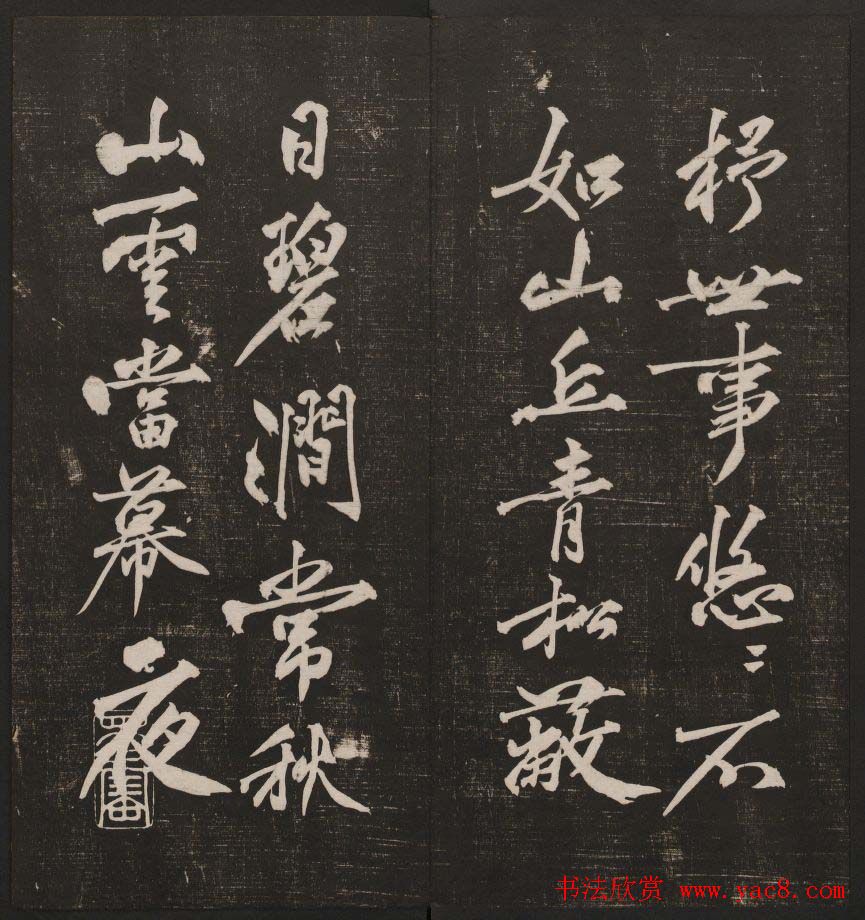 杼世事悠〻不
如山丘青松蔽
日碧澗常秋
山雲當幕夜
书法欣赏 www.yac8.com